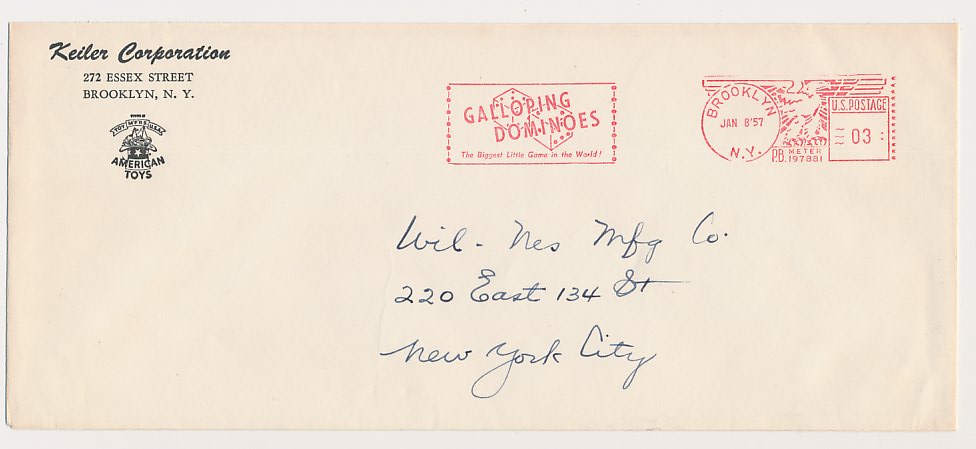 Keiler Corporation
272 ESSEX STREET
BROOKLYN, N. Y.
TOY MFRS. U.S.A.
AMERICAN
TOYS
GALLOPING
DOMINOES
The Biggest Little Game in the World!
BROOKLYN
JAN 8'57
N.Y.
U.S. POSTAGE
03
P.B. METER
197881
Wil-Nes Mfg Co.
220 East 134 St
New York City